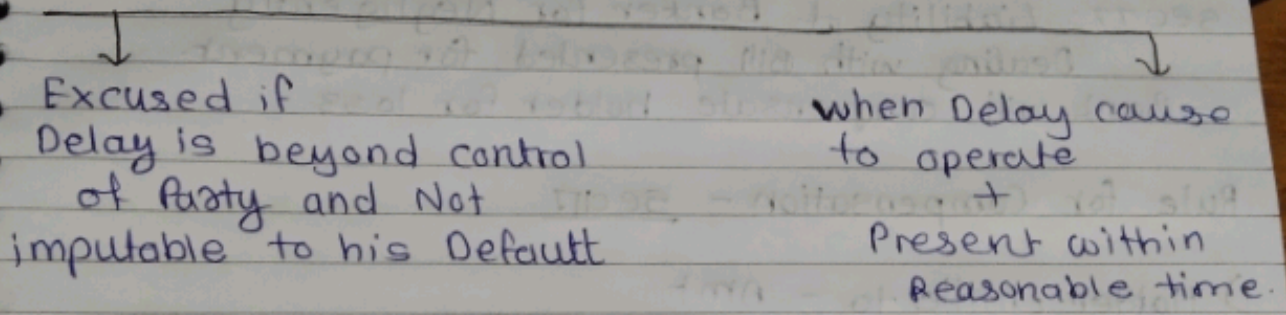 Excused if
Delay is beyond control
of Party and Not
imputable to his Default
when Delay cause
to operate
+
Present within
Reasonable time.